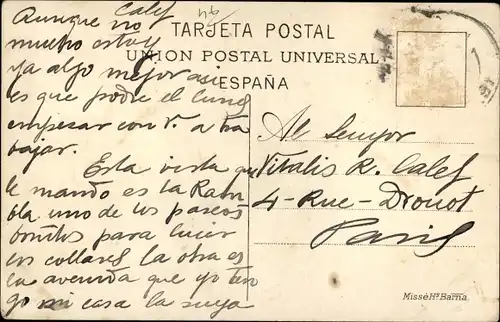 Calef
Aunque no
mucho estoy
ya algo mejor asi
es que podre el lunes
empesar con V. a tra
bajar.
Esta vista que
le mando es la Ram
bla uno de los paseos
bonitos para lucir
los collares la otra es
la avenida que yo ten
go mi casa la suya
TARJETA POSTAL
UNION POSTAL UNIVERSAL
ESPAÑA
Al Senyor
Vitalis R. Calef
4 - Rue - Drouot
Paris
Missé Hs Barna